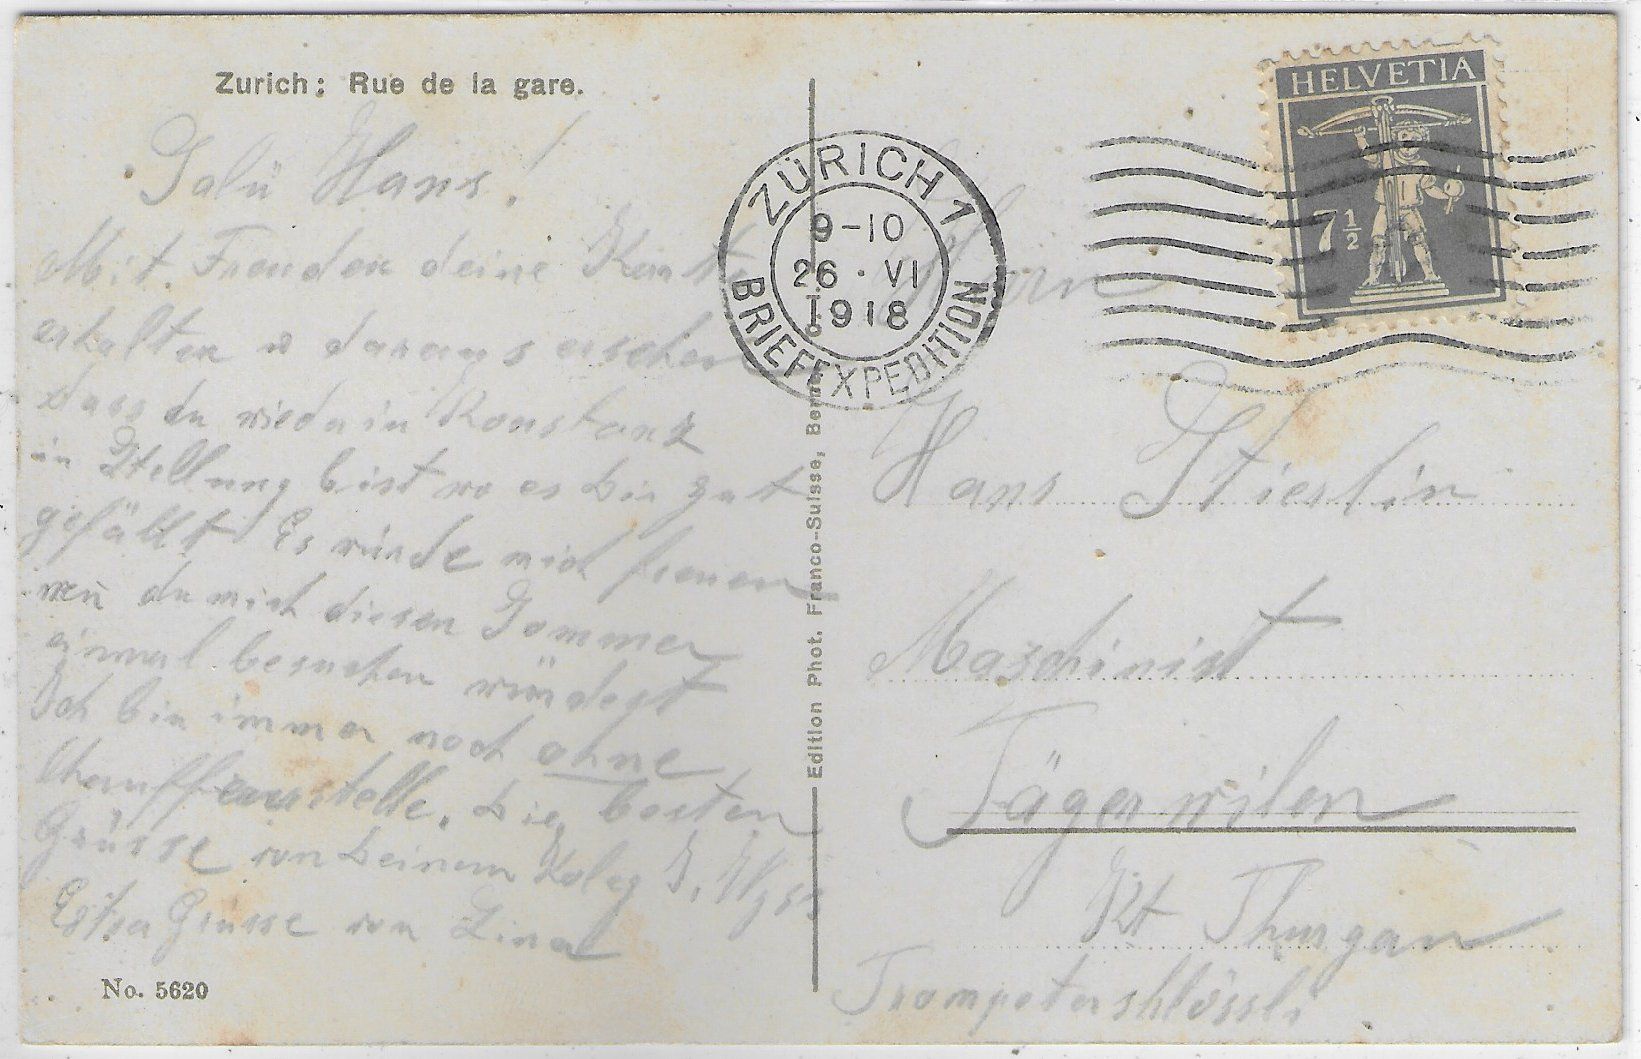 Zurich: Rue de la gare.
Salü Hans!
Mit Freuden deine Karte
erhalten u daraus ersehen
dass du wieder in Konstanz
in Stellung bist wo es Dir gut
gefällt Es würde mich freuen
wen̄ du mich diesen Sommer
einmal besuchen würdest
Ich bin immer noch ohne
Chauffeurstelle. Die besten
Grüsse von Deinem Koleg J. Wyss
Extra Grüsse von Lina
No. 5620
Edition Phot. Franco-Suisse, Berne.
ZÜRICH 1
9-10
26 · VI
1918
BRIEFEXPEDITION
HELVETIA
7½
Herrn
Hans Stierlin
Maschinist
Tägerwilen
Kt Thurgau
Trompeterschlössli